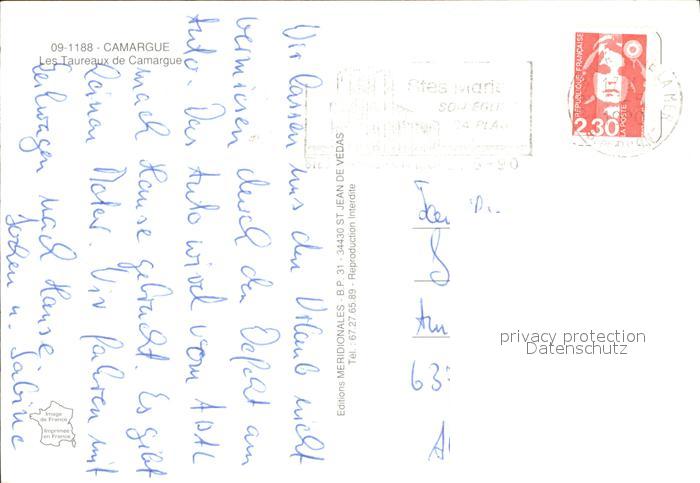 09-1188 - CAMARGUE
Les Taureaux de Camargue
Wir lassen uns den Urlaub nicht
vermiesen durch den Defekt am
Auto. Das Auto wird vom ADAC
nach Hause gebracht. Es gibt
keinen Motor. Wir fahren mit
Leihwagen nach Hause,
Jochen u. Sabine
Editions MERIDIONALES - B.P. 31 - 34430 ST JEAN DE VEDAS
Tel.: 67.27.65.89 - Reproduction Interdite
Image
de France
Imprimée
en France
Stes Marie
SON EGLI
SA PLA
REPUBLIQUE FRANÇAISE
2.30
LA POSTE
63
privacy protection
Datenschutz